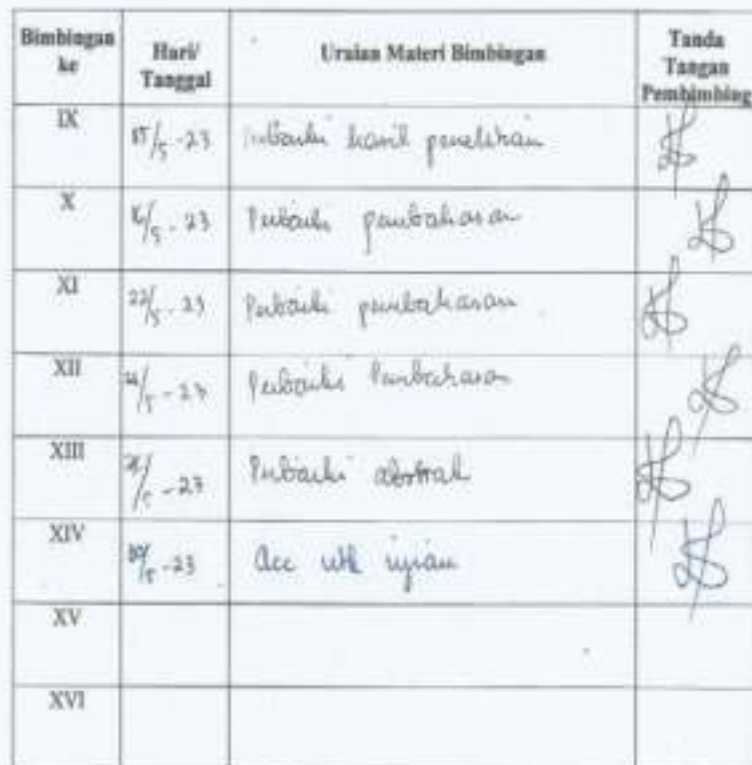 Bimbingan ke Hari/ Tanggal Uraian Materi Bimbingan Tanda Tangan Pembimbing
IX 15/5-23 Perbaiki hasil penelitian
X 16/5-23 Perbaiki pembahasan
XI 22/5-23 Perbaiki pembahasan
XII /5-23 Perbaiki Pembahasan
XIII /5-23 Perbaiki abstrak
XIV 30/5-23 Acc utk ujian
XV
XVI